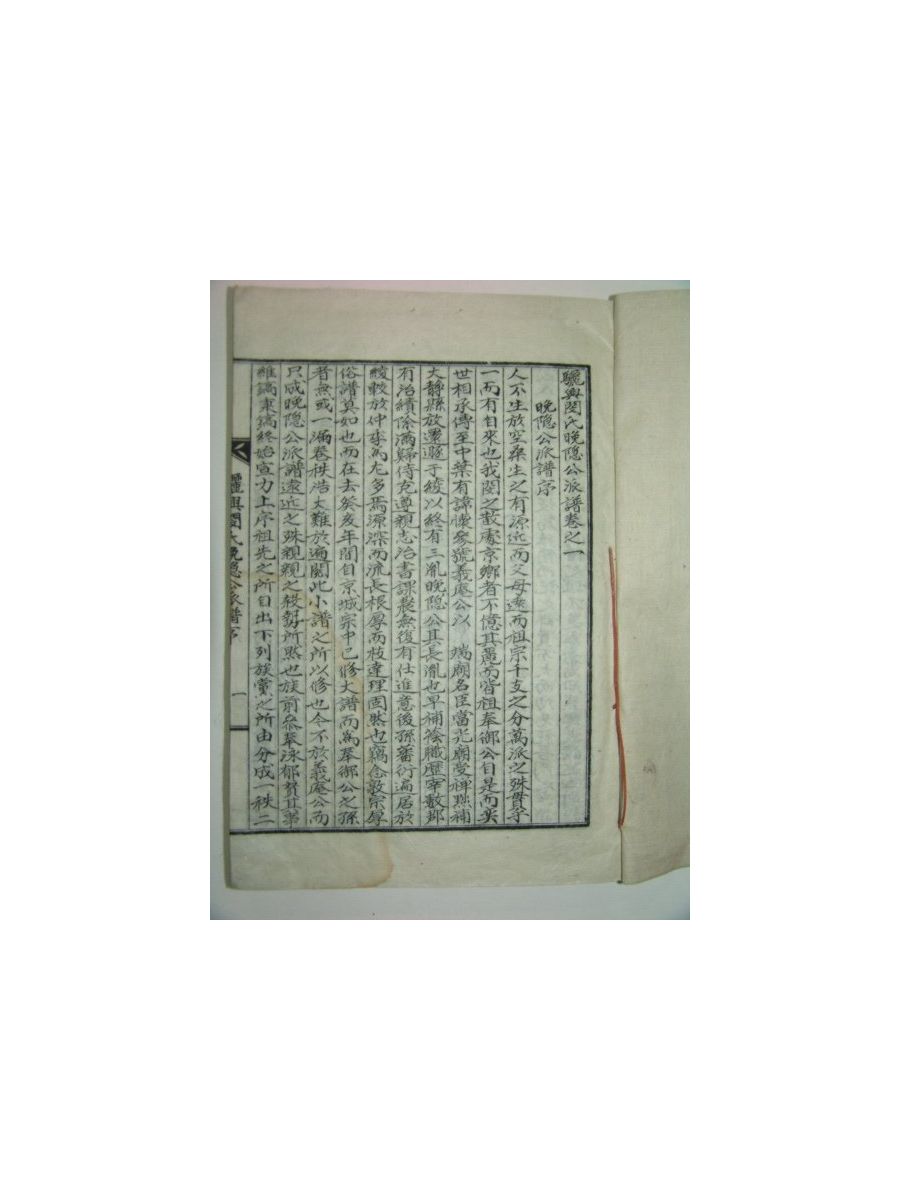 驪興閔氏晚隱公派譜卷之一
晚隱公派譜序
人不生於空桑生之有源近而父母遠而祖宗千支之分萬派之殊貫乎
一而有自來也我閔之散處京鄉者不億其麗而皆祖奉御公自是而奕
世相承傳至中葉有諱懷參號義庵公以 端廟名臣當光廟受禪黜補
大靜縣放還遯于綾以終有三胤晚隱公其長胤也早補蔭職歷宰數邦
有治績餘滿歸侍克遵親志治書課農無復有仕進意後孫蕃衍遍居於
綾較於仲季爲尤多焉源深而流長根厚而枝達理固然也竊念敦宗厚
俗譜莫如也而在去癸亥年間自京城宗中已修大譜而爲奉御公之孫
者無或一漏卷秩浩大難於遍閱此小譜之所以修也今不於義庵公而
只成晚隱公派譜遠近之殊親親之殺勢所然也族前參奉泳郁贊其事
維鎬東鎬終始宣力上序祖先之所自出下列族黨之所由分成一秩二
驪興閔氏晚隱公派譜序 一